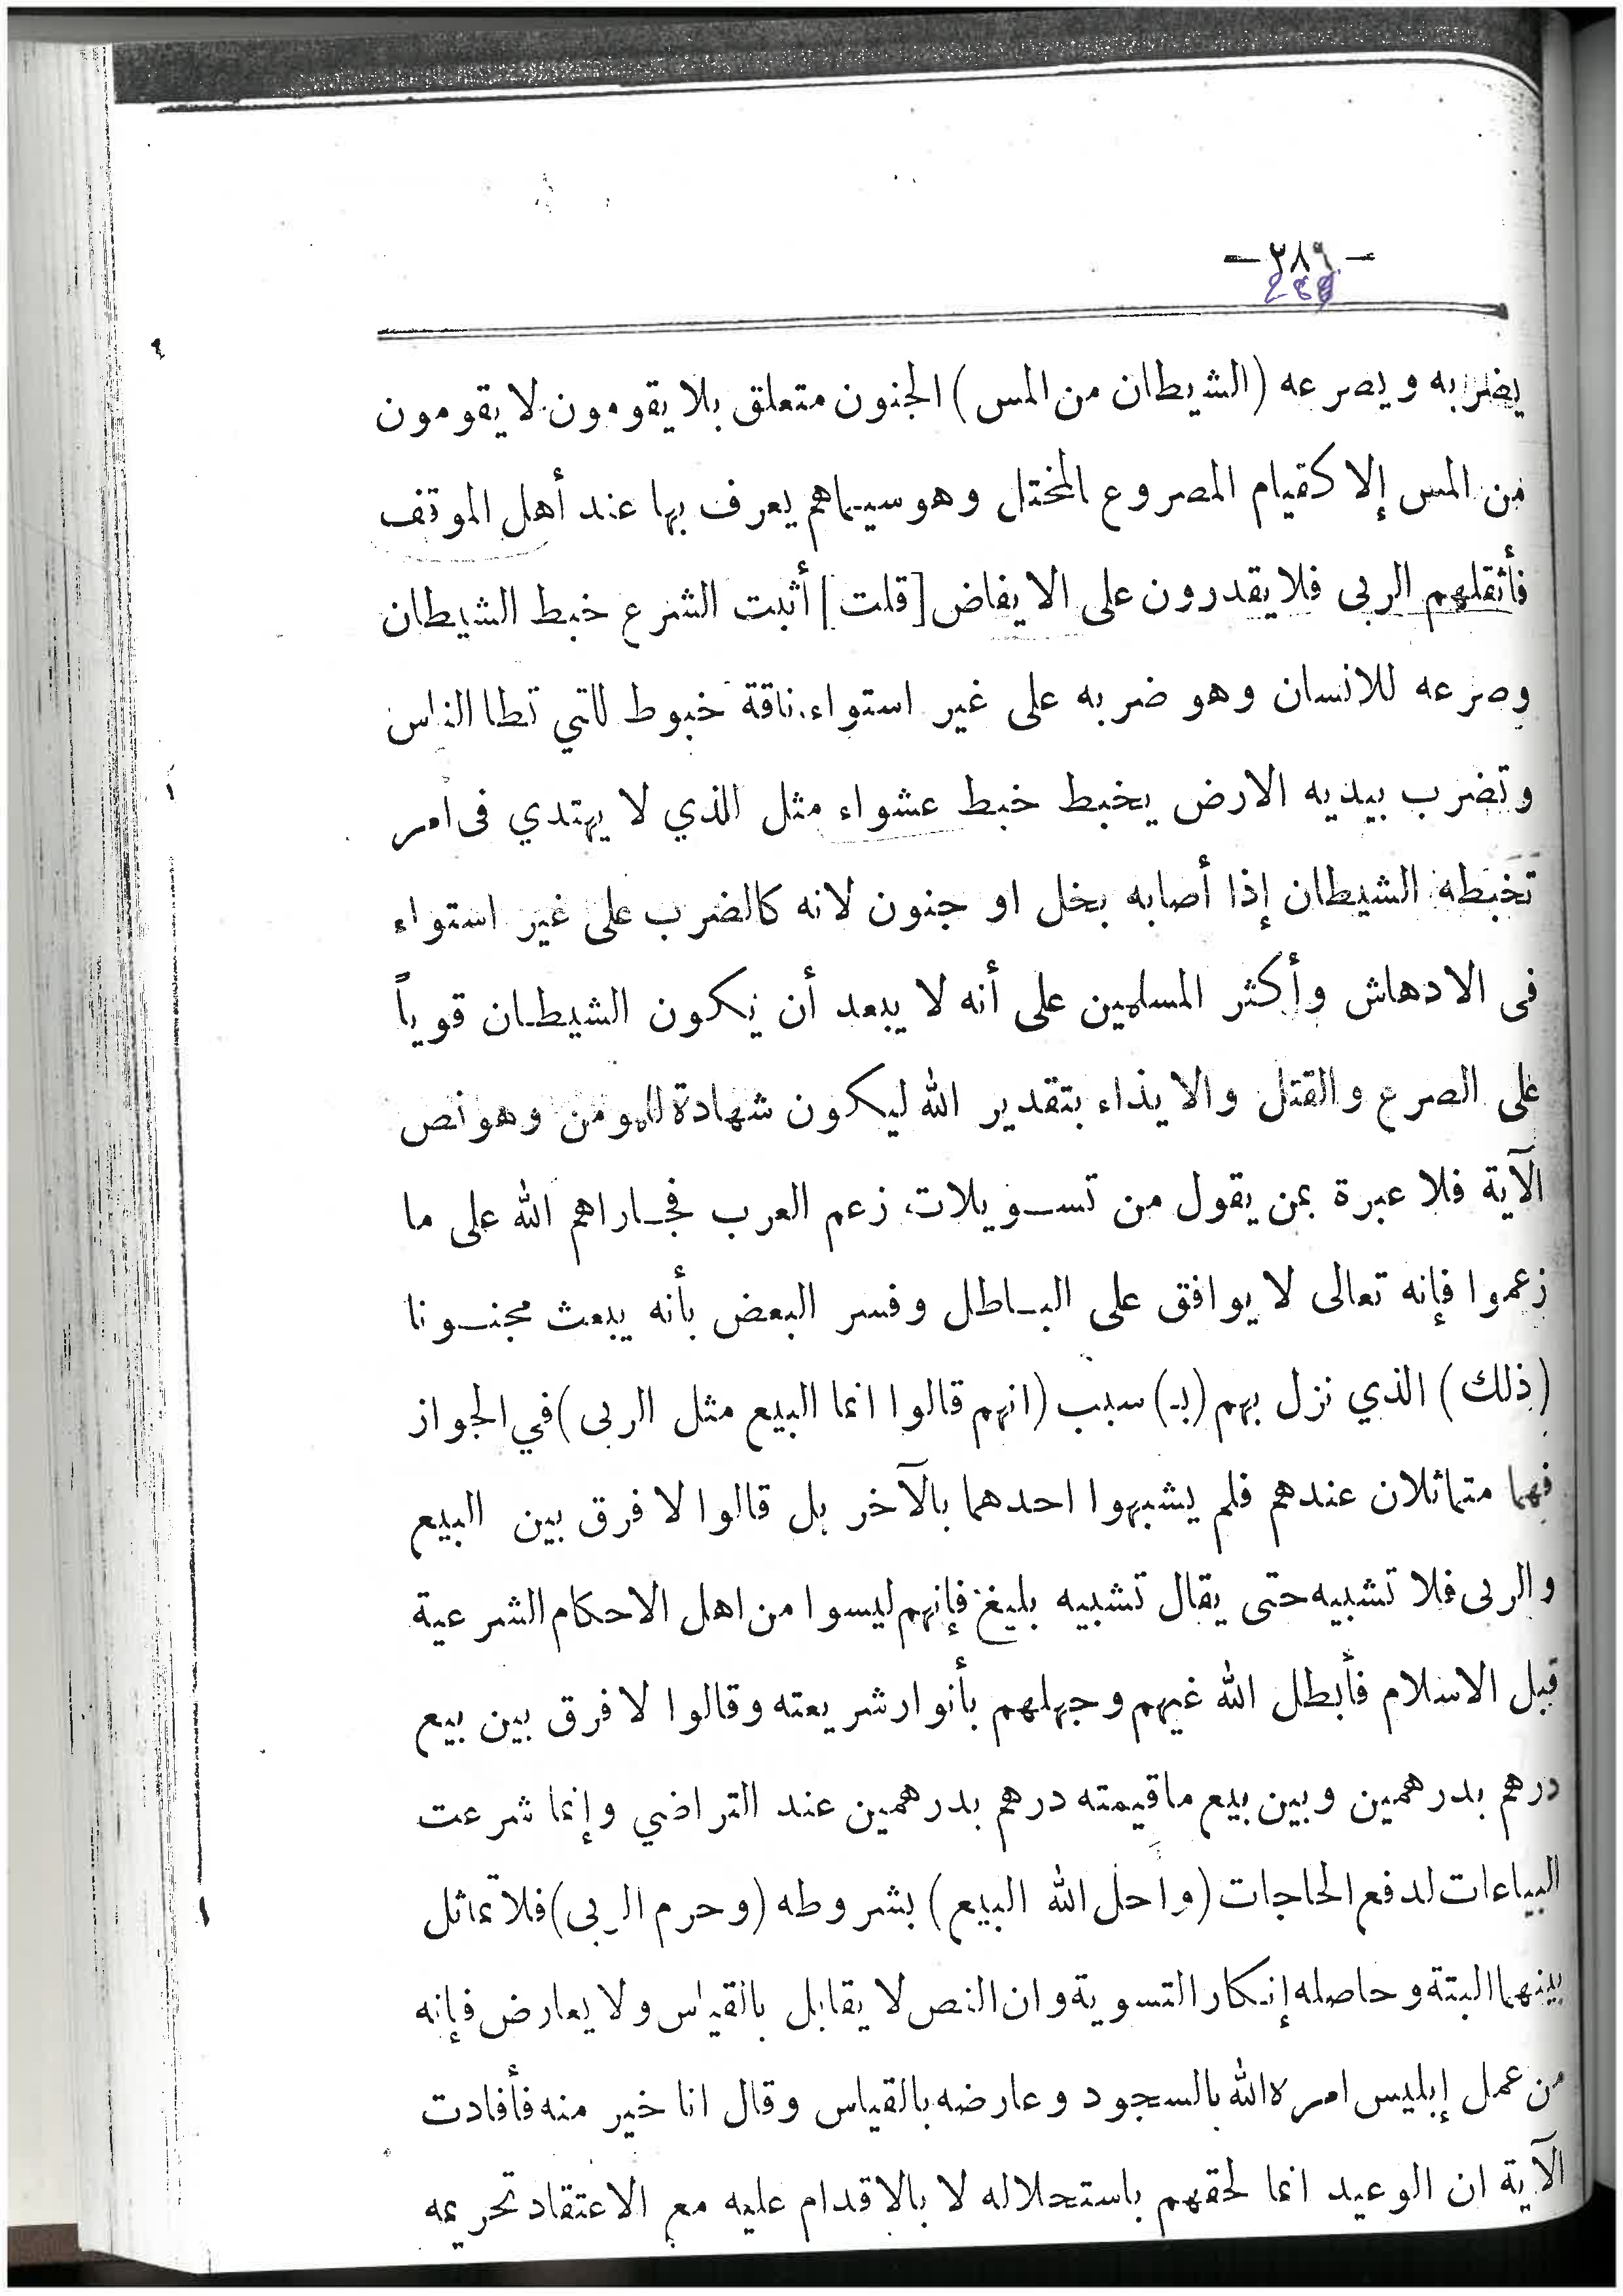 — ٢٨٩ —
289
يضربه ويصرعه (الشيطان من المس) الجنون متعلق بلا يقومون لا يقومون
من المس إلا كقيام المصروع المختل وهو سيماهم يعرف بها عند أهل الموقف
فأثقلهم الربى فلا يقدرون على الايفاض [قلت] أثبت الشرع خبط الشيطان
وصرعه للانسان وهو ضربه على غير استواء، ناقة خبوط للتي تطا الناس
وتضرب بيديه الارض يخبط خبط عشواء مثل الذي لا يهتدي فى امر
تخبطه الشيطان إذا أصابه بخل او جنون لانه كالضرب على غير استواء
فى الادهاش وأكثر المسلمين على أنه لا يبعد أن يكون الشيطان قوياً
على الصرع والقتل والايذاء بتقدير الله ليكون شهادة للمومن وهو نص
الآية فلا عبرة بمن يقول من تسويلات، زعم العرب فجاراهم الله على ما
زعموا فإنه تعالى لا يوافق على الباطل وفسر البعض بأنه يبعث مجنونا
(ذلك) الذي نزل بهم (بـ) سبب (انهم قالوا انما البيع مثل الربى) في الجواز
فهما متماثلان عندهم فلم يشبهوا احدهما بالآخر بل قالوا لا فرق بين البيع
والربى فلا تشبيه حتى يقال تشبيه بليغ فإنهم ليسوا من اهل الاحكام الشرعية
قبل الاسلام فأبطل الله غيهم وجهلهم بأنوار شريعته وقالوا لا فرق بين بيع
درهم بدرهمين وبين بيع ما قيمته درهم بدرهمين عند التراضي وإنما شرعت
البياعات لدفع الحاجات (واحل الله البيع) بشروطه (وحرم الربى) فلا تماثل
بينهما البتة وحاصله إنكار التسوية وان النص لا يقابل بالقياس ولا يعارض فإنه
من عمل إبليس امره الله بالسجود وعارضه بالقياس وقال انا خير منه فأفادت
الآية ان الوعيد انما لحقهم باستحلاله لا بالاقدام عليه مع الاعتقاد تحريمه